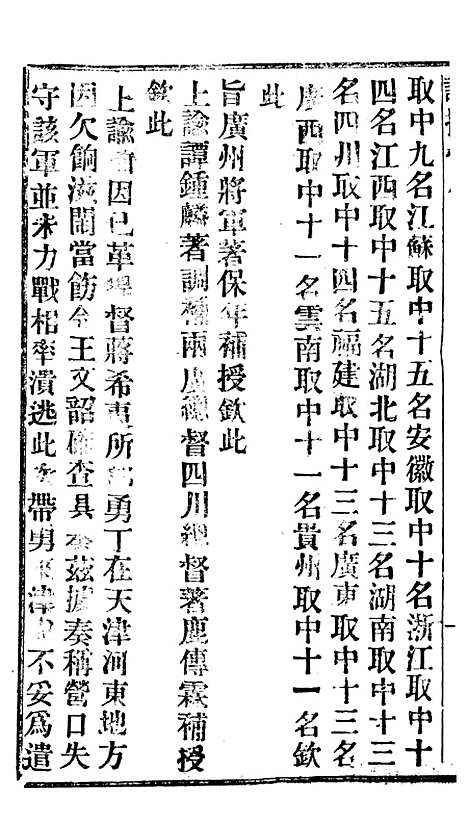 取中九名江蘇取中十五名安徽取中十名浙江取中十
四名江西取中十五名湖北取中十三名湖南取中十三
名四川取中十四名福建取中十三名廣東取中十三名
廣西取中十一名雲南取中十一名貴州取中十一名欽
此
旨廣州將軍著保年補授欽此
上諭譚鍾麟著調補兩廣總督四川總督著鹿傳霖補授
欽此
上諭前因已革總督蔣希夷所部勇丁在天津河東地方
因欠餉滋鬧當飭令王文韶確查具奏茲據奏稱營口失
守該軍並未力戰相率潰逃此次帶勇來津 不妥爲遣